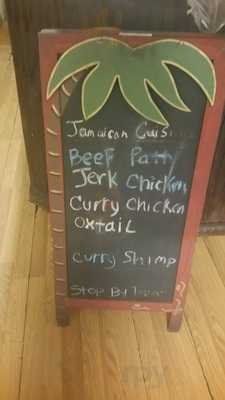 Jamaican Cuisine
Beef Patty
Jerk Chicken
Curry Chicken
Oxtail
Curry Shimp
Stop By